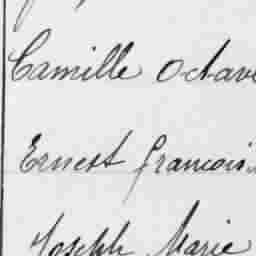 Camille Octave
Ernest François
Joseph Marie